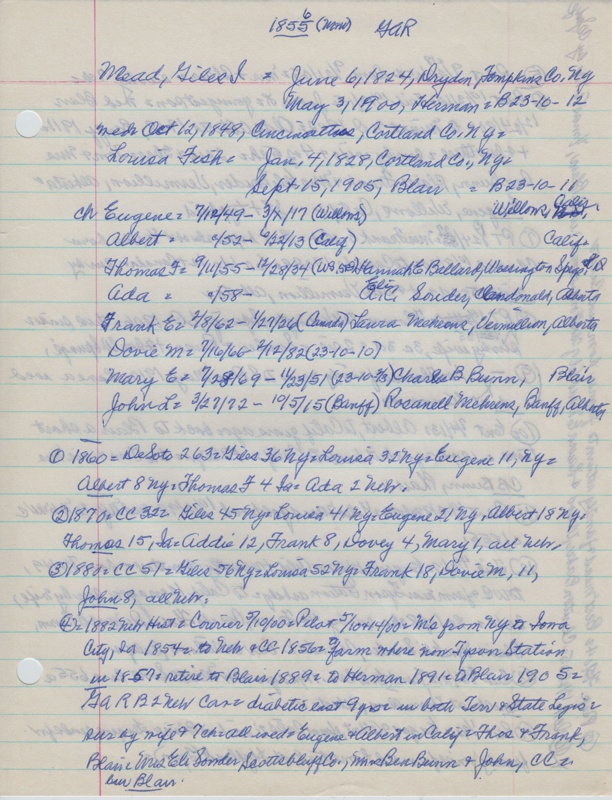 1856 (Mow) GaR
Mead, Giles I = June 6, 1824, Dryden, Tompkins Co. Ny
May 3, 1900, Herman = B23-10-12
med Oct 12, 1848, Cincinattus, Cortland Co. Ny =
Louisa Fish = Jan. 4, 1828, Cortland Co., Ny =
Sept 15, 1905, Blair = B23-10-11
ch Eugene = 7/12/49 - 3/x/17 (Willows) Willows, Calif
Albert = x/52 - 9/22/13 (Calif) Calif =
Thomas F = 9/11/55 - 12/28/34 Hannah E Ballard, Wessington Spgs, SD
Ada = x/58 - Eli Souder, Clandonald, Alberta
Frank E = 2/8/62 - 1/27/26 (Canada) Laura Mehrens, Vermillion, Alberta
Dovie M = 7/16/66 - 2/12/82 (23-10-10)
Mary E = 7/28/69 - 11/23/51 (23-10-3) Charles B Bunn, Blair
John L = 3/27/72 - 10/5/65 (Banff) Rosanell Mehrens, Banff, Alberta
① 1860 = DeSoto 263 = Giles 36 Ny = Louisa 32 Ny = Eugene 11, Ny =
Albert 8 Ny = Thomas F 4 Ia = Ada 2 Nebr.
② 1870 = CC 322 = Giles 45 Ny = Louisa 41 Ny = Eugene 21 Ny, Albert 18 Ny,
Thomas 15, Ia = Addie 12, Frank 8, Dovey 4, Mary 1, all Nebr.
③ 1880 = CC 51 = Giles 56 Ny = Louisa 52 Ny = Frank 18, Dovie M, 11,
John 8, all Nebr.
④ = 1882 Nebr Hist = Courier 5/10/00 = Pilot 5/10 + 14/00 = M a from Ny to Iowa
City, Ia 1854 = to Nebr & CC 1856 = to farm where now Tyson Station
in 1857 = retire to Blair 1889 = to Herman 1891 = to Blair 1905 =
GaR B 2 Nebr Cav = diabetic last 9 yrs = in both Terr & State Legis =
surv by wife & 7 ch = all wed = Eugene & Albert in Calif = Thos & Frank,
Blair = Mrs Eli Souder, Scottsbluff Co., Mrs Ben Bunn & John, CC =
bur Blair.